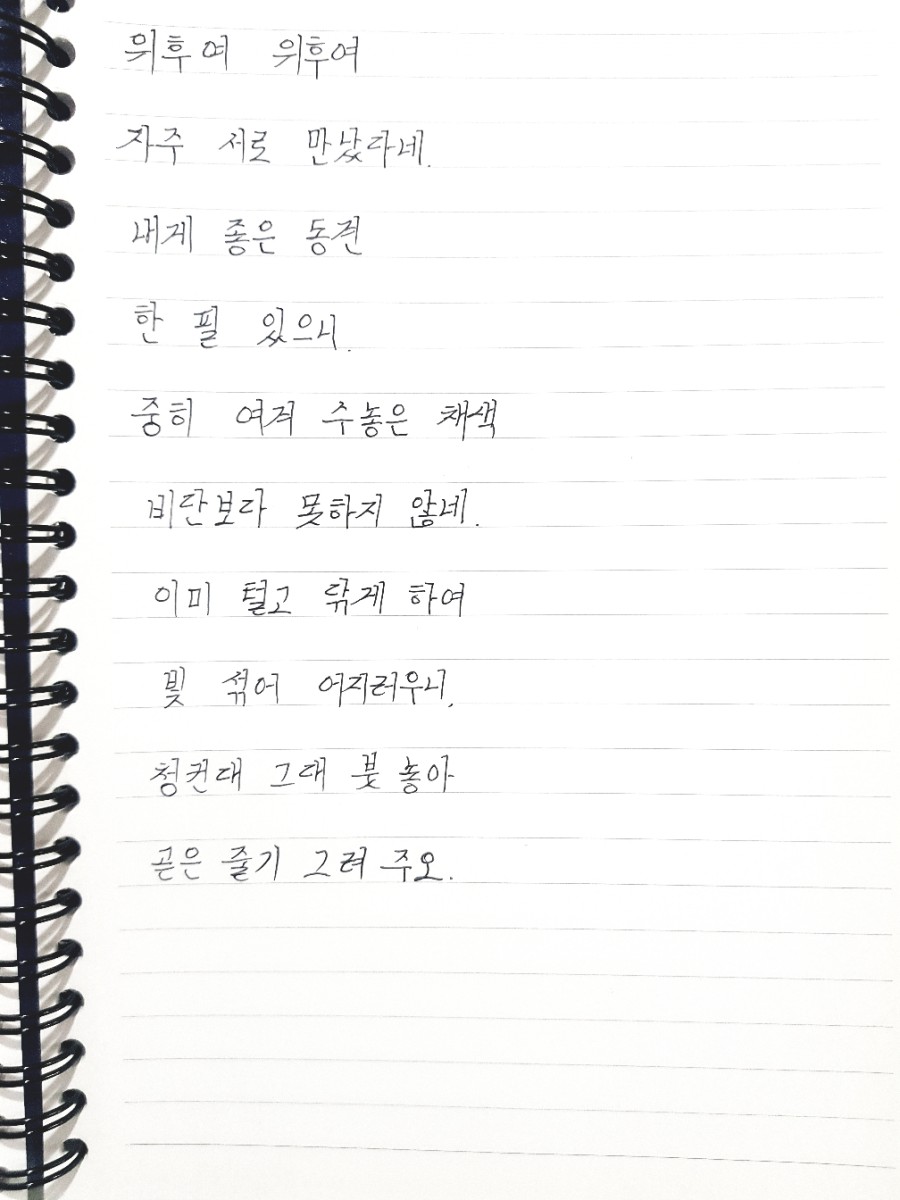 위후여 위후여
자주 서로 만났라네.
내게 좋은 동견
한 필 있으니.
중히 여겨 수놓은 채색
비단보다 못하지 않네.
이미 털고 닦게 하여
빛 섞어 어지러우니,
청컨대 그대 붓 놓아
곧은 줄기 그려 주오.